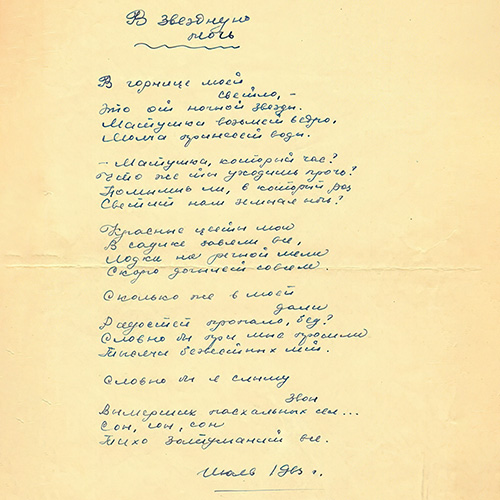 В звездную
ночь
В горнице моей
светло, –
Это от ночной звезды.
Матушка возьмет ведро,
Молча принесет воды.
– Матушка, который час?
Что же ты уходишь прочь?
Помнишь ли, в который раз
Светит нам земная ночь?
Красные цветы мои
В садике завяли все,
Лодка на речной мели
Скоро догниет совсем.
Сколько же в моей
дали
Радостей пропало, бед?
Словно бы при мне прошли
Тысячи безжитных лет.
Словно бы я слышу
звон
Вымерших пасхальных сел...
Сон, сон, сон
Тихо затуманит все.
Июль 1965 г.